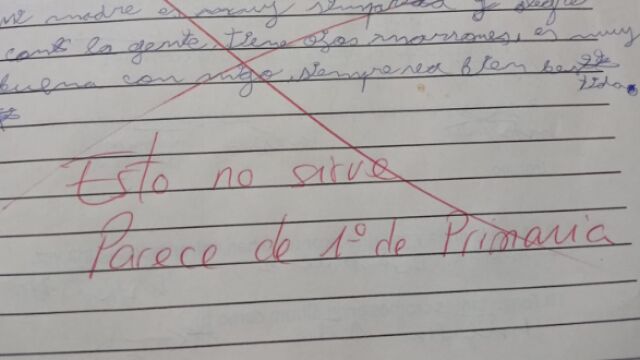 mi madre es muy simpatica y alegre
cont la gente, tiene ojos marrones, es muy
buena con migo, siempre va bien bes
tida.
Esto no sirve
Parece de 1º de Primaria